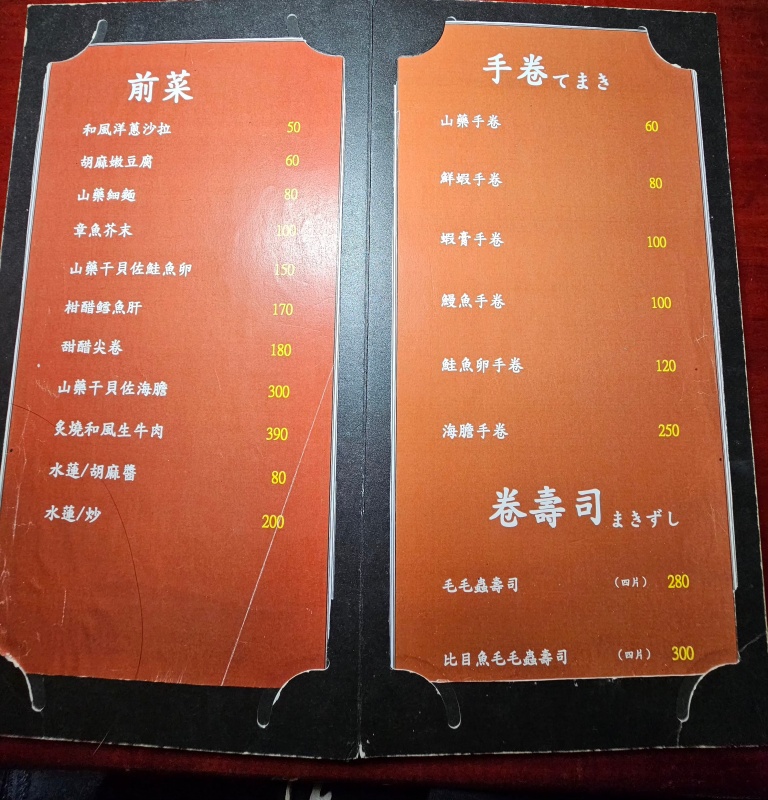 前菜
和風洋蔥沙拉 50
胡麻嫩豆腐 60
山藥細麵 80
章魚芥末 100
山藥干貝佐鮭魚卵 150
柑醋鱈魚肝 170
甜醋尖卷 180
山藥干貝佐海膽 300
炙燒和風生牛肉 390
水蓮/胡麻醬 80
水蓮/炒 200
手卷てまき
山藥手卷 60
鮮蝦手卷 80
蝦膏手卷 100
鰻魚手卷 100
鮭魚卵手卷 120
海膽手卷 250
卷壽司まきずし
毛毛蟲壽司 (四片) 280
比目魚毛毛蟲壽司 (四片) 300